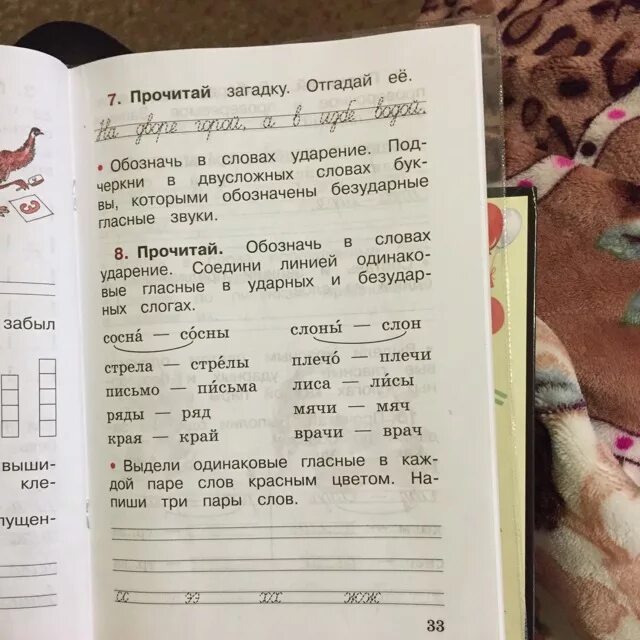 7. Прочитай загадку. Отгадай её.
На дворе горой, а в избе водой.
• Обозначь в словах ударение. Под-
черкни в двусложных словах бук-
вы, которыми обозначены безударные
гласные звуки.
8. Прочитай. Обозначь в словах
ударение. Соедини линией одинако-
вые гласные в ударных и безудар-
ных слогах.
сосна́ — со́сны слоны́ — слон
стрела — стре́лы плечо́ — плечи
письмо — пи́сьма лиса — ли́сы
ряды — ряд мячи — мяч
края — край врачи — врач
• Выдели одинаковые гласные в каж-
дой паре слов красным цветом. На-
пиши три пары слов.
сс ээ хх жж
33
забыл
выши-
кле-
пущен-